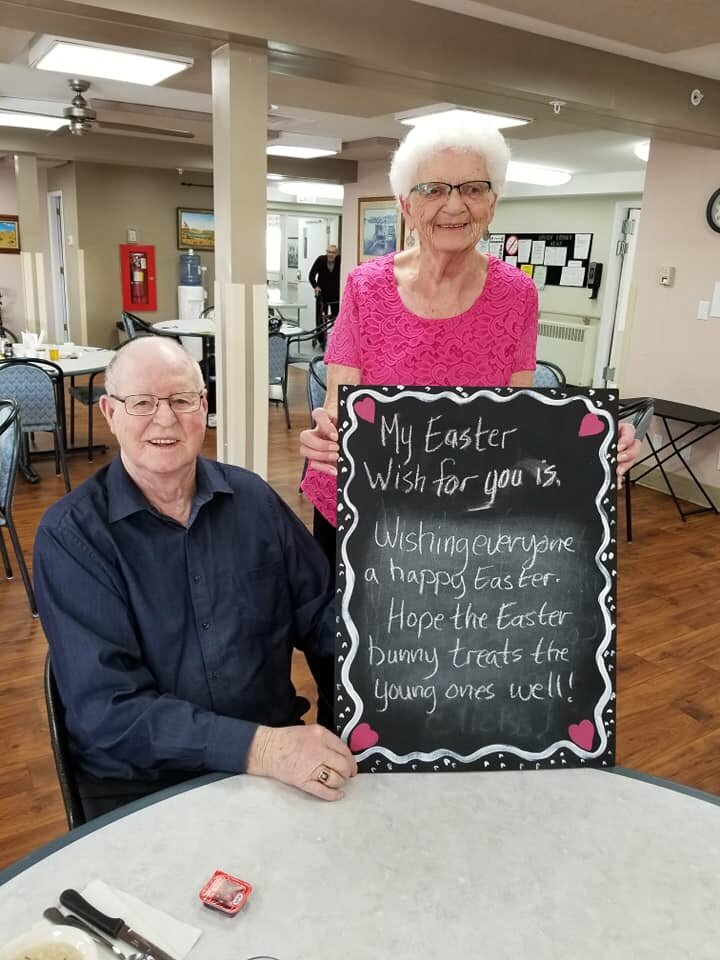 My Easter
Wish for you is.
Wishing everyone
a happy Easter.
Hope the Easter
bunny treats the
young ones well!